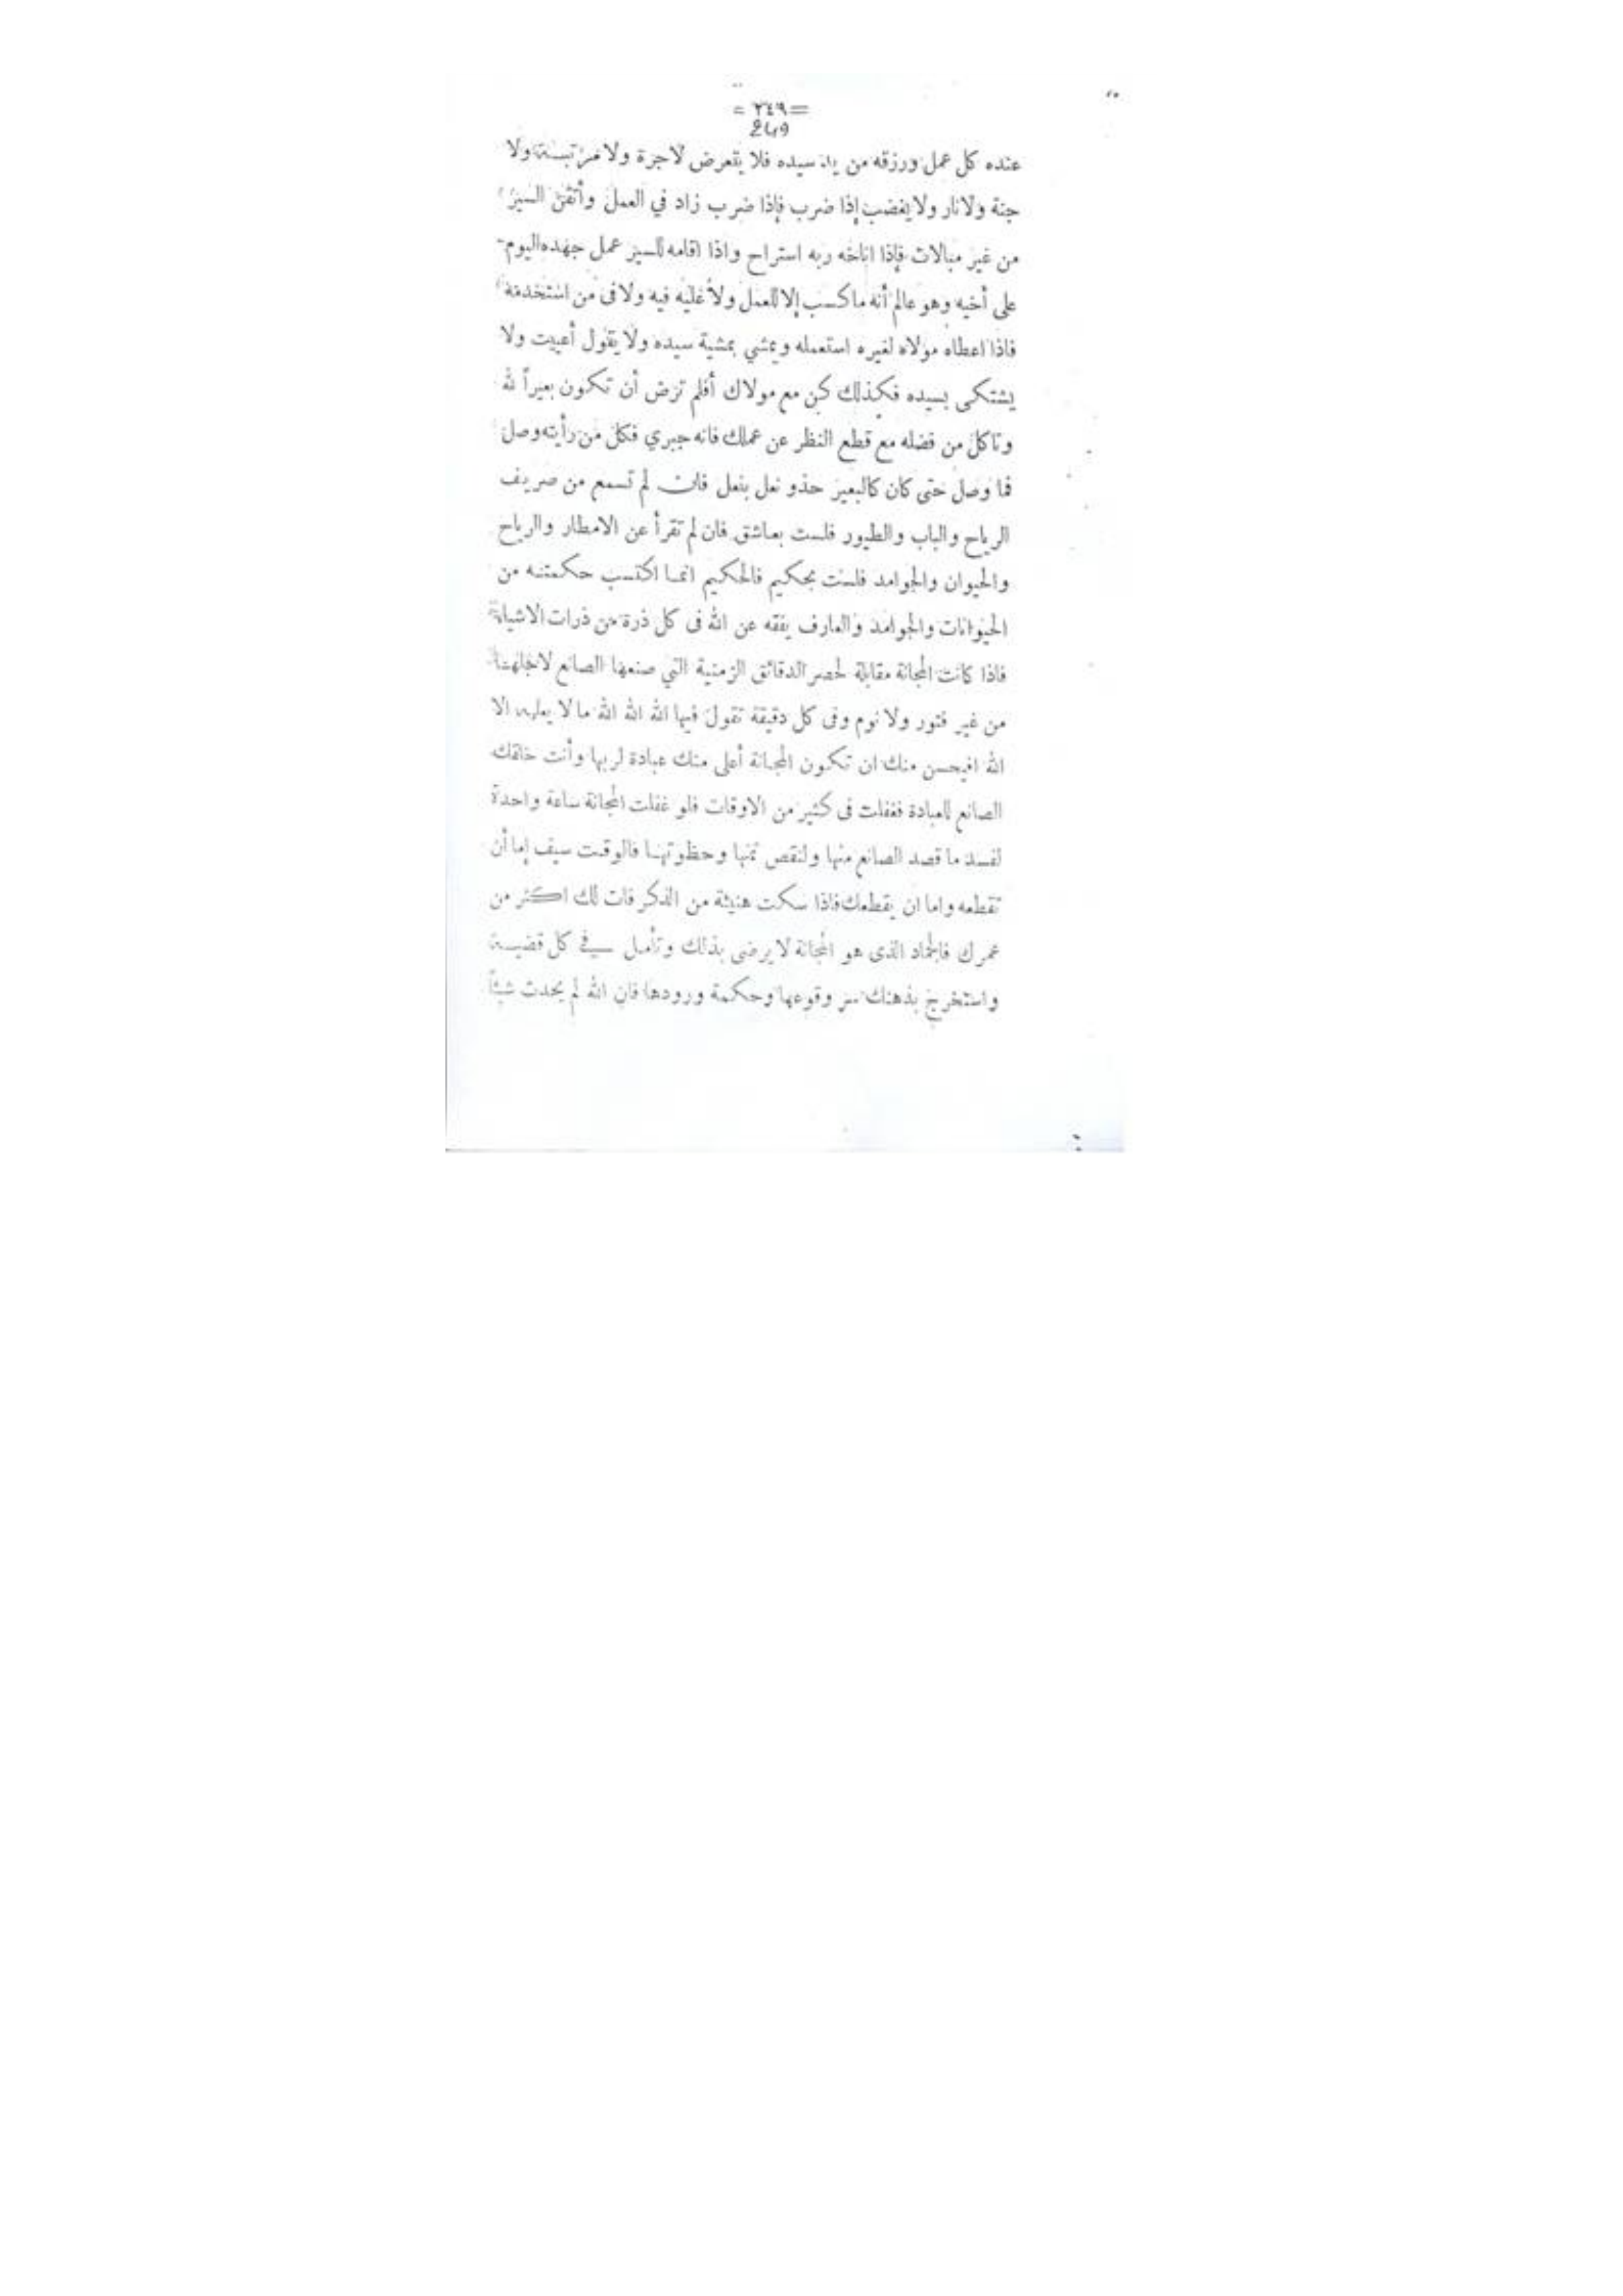 = ٢٤٩ =
249
عنده كل عمل ورزقه من يد سيده فلا يتعرض لاجرة ولا مرتبة ولا
جنة ولا نار ولا يغضب إذا ضرب فإذا ضرب زاد في العمل وأتقن السير
من غير مبالات فإذا اناخه ربه استراح واذا اقامه للسير عمل جهده اليوم
على أخيه وهو عالم أنه ما كسب إلا للعمل ولا عليه فيه ولا فى من استخدمه
فاذا اعطاه مولاه لغيره استعمله ويمشي بمشية سيده ولا يقول أعييت ولا
يشتكى بسيده فكذلك كن مع مولاك أفلم ترض أن تكون بعيراً لله
وتاكل من فضله مع قطع النظر عن عملك فانه جبري فكل من رأيته وصل
فما وصل حتى كان كالبعير حذو نعل بنعل فان لم تسمع من صريف
الرياح والباب والطيور فلست بعاشق فان لم تقرأ عن الامطار والرياح
والحيوان والجوامد فلست بحكيم فالحكيم انما اكتسب حكمته من
الحيوانات والجوامد والعارف يفقه عن الله فى كل ذرة من ذرات الاشياء
فاذا كانت المجانة مقابلة لحصر الدقائق الزمنية التي صنعها الصانع لاجلها
من غير فتور ولا نوم وفى كل دقيقة تقول فيها الله الله الله ما لا يعلمه الا
الله افيحسن منك ان تكون المجانة أعلى منك عبادة لربها وأنت خلقك
الصانع للعبادة فغفلت فى كثير من الاوقات فلو غفلت المجانة ساعة واحدة
لفسد ما قصد الصانع منها ولنقص ثمنها وحظوتها فالوقت سيف إما أن
تقطعه واما ان يقطعك فاذا سكت هنيئة من الذكر فات لك اكثر من
عمرك فالجماد الذى هو المجانة لا يرضى بذلك وتأمل في كل قضية
واستخرج بذهنك سر وقوعها وحكمة ورودها فان الله لم يحدث شيئاً